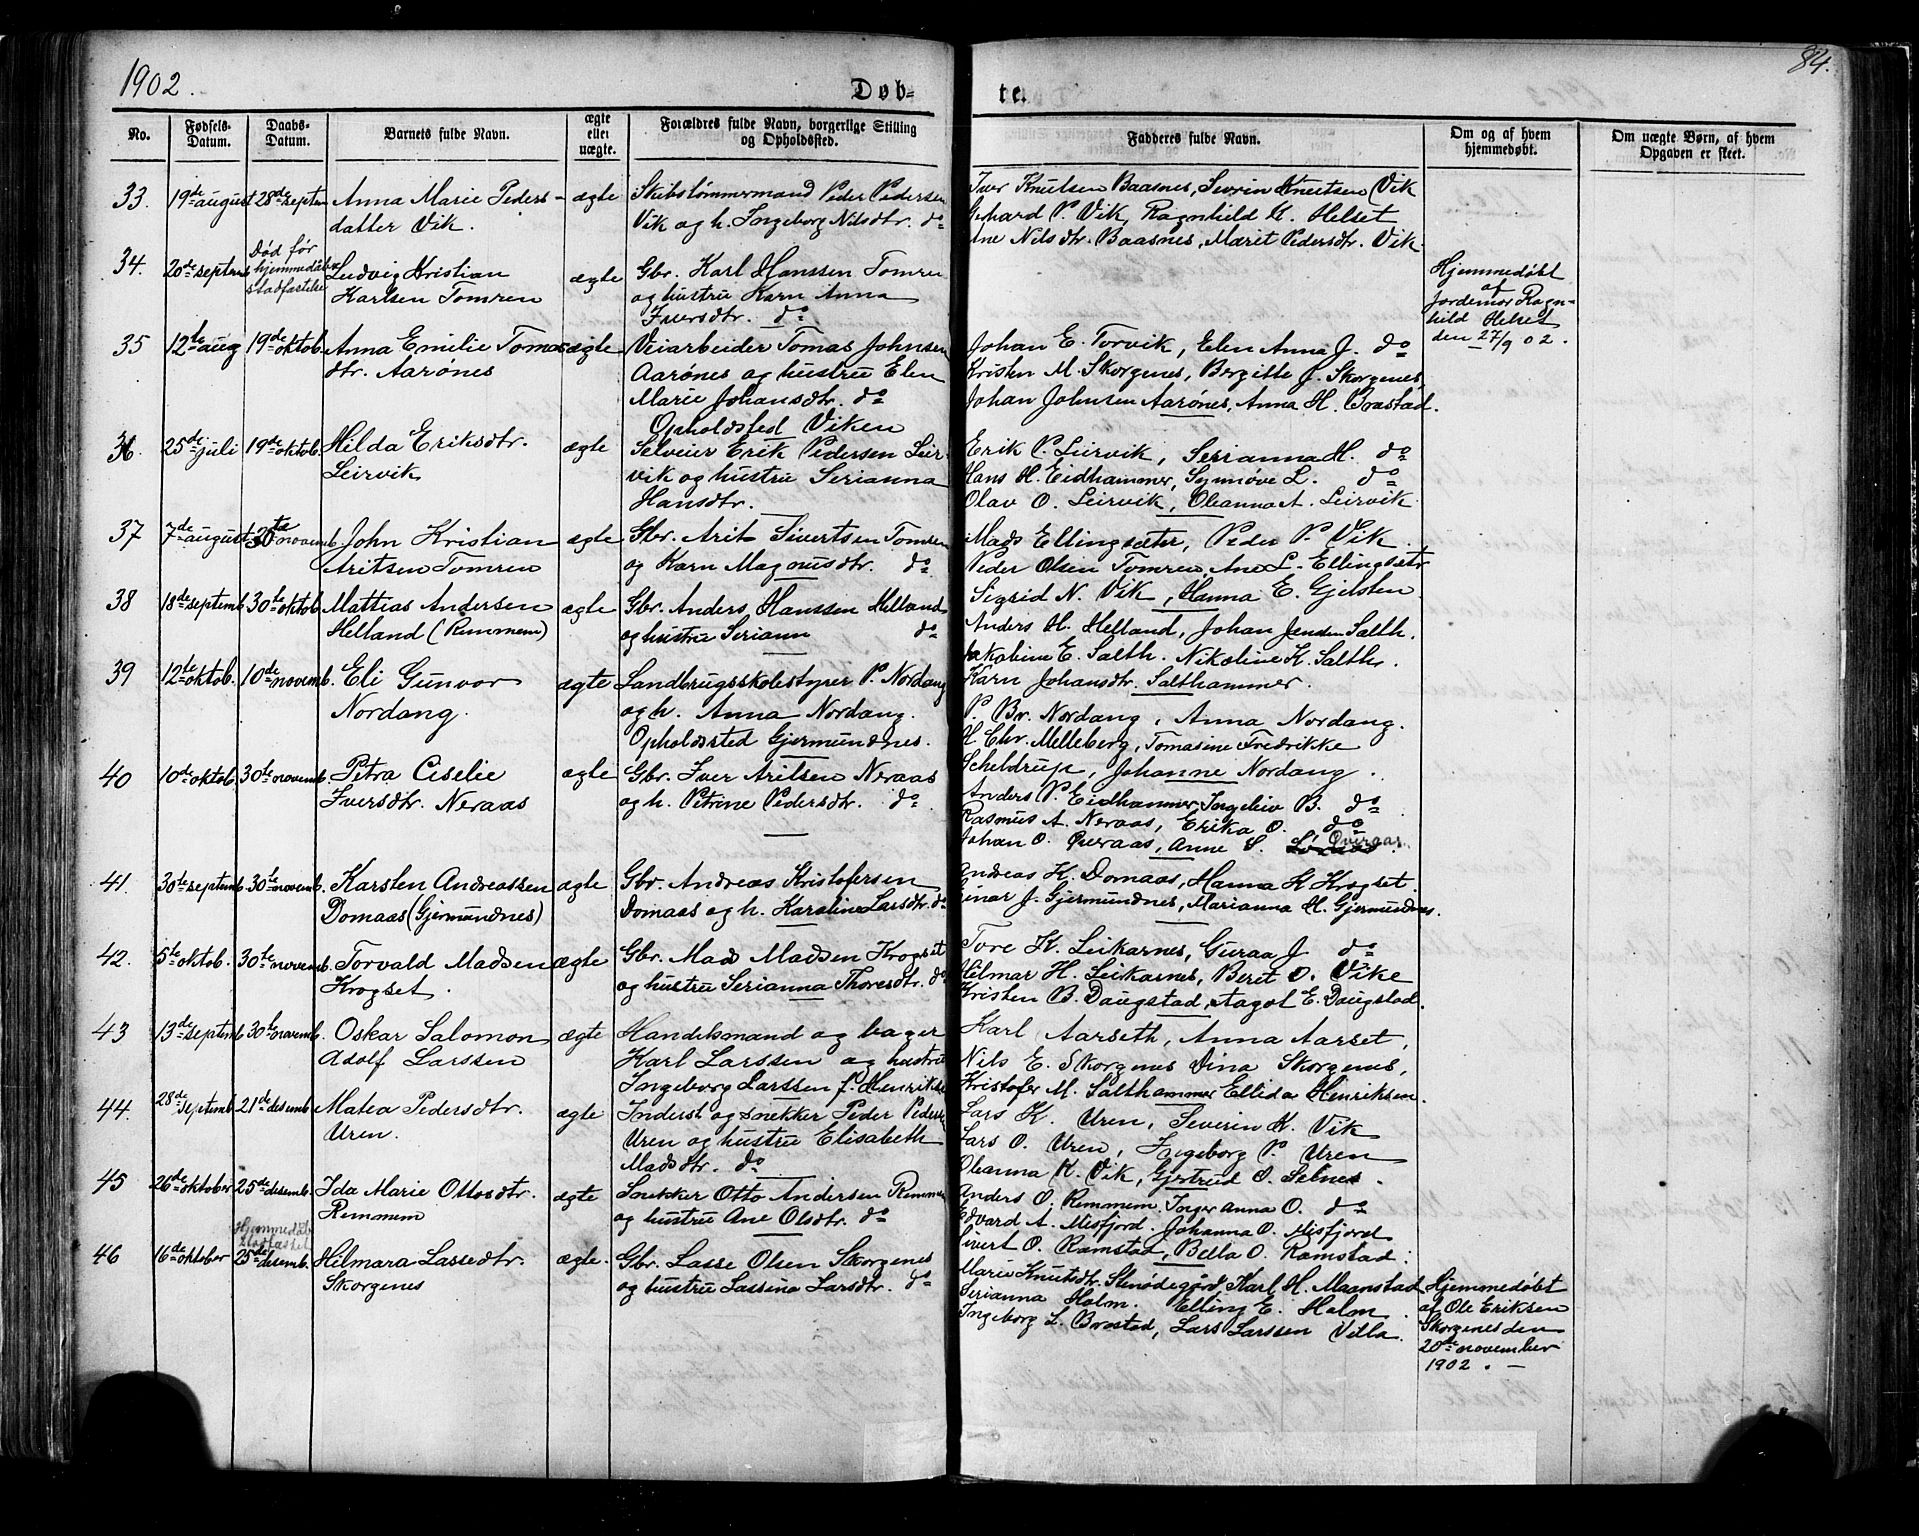 1902.
Døb-
te.
84.
No.
Fødsels-
Datum.
Daabs-
Datum.
Barnets fulde Navn.
ægte
eller
uægte.
Forældres fulde Navn, borgerlige Stilling
og Opholdssted.
Fadderes fulde Navn.
Om og af hvem
hjemmedøbt.
Om uægte Børn, af hvem
Opgaven er skeet.
33. 19de august 28de septem Anna Marie Peders- ægte Skibstømmermand Peder Pedersen
datter Vik. Vik og h. Ingeborg Nilsdtr. do
Iver Knutsen Baasnes, Sevrin Knutsen Vik
Gerhard P. Vik, Ragnhild K. Helset
Ane Nilsdtr. Baasnes, Marit Pedersdtr. Vik.
34. 20de septem Død før
hjemmedåbs
stadfæstelse
Ludvig Kristian ægte Gbr. Karl Hanssen Tomren
Karlsen Tomren og hustru Karn Anna
Iversdtr. do
Hjemmedøbt
af
Jordemor Ragn-
hild Helset
den 27/9 02.
35 12te aug 19de oktob. Anna Emilie Tomas- ægte Veiarbeider Tomas Johnsen
dtr. Aarønes Aarønes og hustru Elen
Marie Johansdtr. do
Opholdsted Viken
Johan E. Torvik, Elen Anna J. do
Kristen M. Skorgenes, Bergitte J. Skorgenes,
Johan Johnsen Aarønes, Anna H. Brastad.
36. 25de juli 19de oktob. Hilda Eriksdtr. ægte Selveier Erik Pedersen Leir-
Leirvik vik og hustru Serianna
Hansdtr.
Erik P. Leirvik, Serianna H. do
Hans H. Eidhammer, Synnøve L. do
Olav O. Leirvik, Oleanna A. Leirvik
37 7de august 30te novemb. John Kristian ægte Gbr. Arit Sivertsen Tomren
Aritsen Tomren og Karn Magnusdtr. do
Mads Ellingsæter, Peder P. Vik.
Peder Olsen Tomren, Ane L. Ellingsætr
Sigrid N. Vik, Hanna E. Gjelsten
38 18de septemb 30te oktob. Mattias Andersen ægte Gbr. Anders Hanssen Helland
Helland (Remmem) og hustru Seriann do
Anders H. Helland, Johan Jensen Salth.
Jakobine E. Salth. Nikoline K. Salth.
Karn Johansdtr. Salthammer.
39 12te oktob. 10de novemb. Eli Gunvor ægte Landbrugsskolestyrer P. Nordang
Nordang. og h. Anna Nordang.
Opholdssted Gjermundnes.
P. Br. Nordang, Anna Nordang.
H. Chr. Melleberg, Tomasine Fredrikke
Scheldrup, Johanne Nordang.
40 10de oktob. 30te novemb. Petra Ciselie ægte Gbr. Iver Aritsen Neraas
Iversdtr. Neraas og h. Petrine Pedersdtr. do
Anders P. Eidhammer, Ingeleiv B. do
Rasmus A. Neraas, Erika O. do
Johan O. Øveraas, Anne S. Øveraas.
41. 30te septemb 30te novemb. Karsten Andreassen ægte Gbr. Andreas Kristofersen
Domaas (Gjermundnes) Domaas og h. Karoline Larsdtr. do
Andreas K. Domaas, Hanna K. Krogset.
Einar J. Gjermundnes, Marianna M. Gjermundnes.
42. 5te oktob. 30te novemb. Torvald Madsen ægte Gbr. Mads Madsen Krogset
Krogset. og hustru Serianna Thoresdtr. do
Tore K. Leikarnes, Guraa J. do
Hilmar H. Leikarnes, Beret O. Vike
Kristen B. Daugstad, Aagot E. Daugstad.
43 13de septemb 30te novemb. Oskar Salomon ægte Handelsmand og bager
Adolf Larssen Karl Larssen og hustru
Ingeborg Larssen f. Henriksen
Karl Aarseth, Anna Aarset,
Nils E. Skorgenes Dina Skorgenes,
Kristofer M. Salthammer Ellida Henriksen.
44. 28de septemb. 21de desemb. Matea Pedersdtr. ægte Inderst og snekker Peder Peders
Uren. Uren og hustru Elisabeth
Madsdtr. do
Lars K. Uren, Severin K. Vik
Lars O. Uren, Ingeborg P. Uren
Oleanna K. Vik, Gjertrud O. Selnes.
45 26de oktober 25de desemb. Ida Marie Ottosdtr. ægte Snekker Otto Andersen Remmem
Remmem og hustru Ane Olsdtr. do
Anders O. Remmem. Inger Anna O. do
Edvard A. Misfjord. Johanna O. Misfjord
Sivert O. Ramstad, Bella O. Ramstad.
Hjemmedåb
stadfæstet
46 16de oktober 25de desemb. Hilmara Lassedtr. ægte. Gbr. Lasse Olsen Skorgenes
Skorgenes og hustru Lassina Larsdtr. do
Marie Knutsdtr. Stenødegård, Karl H. Maanstad
Serianna Holm. Elling E. Holm
Ingeborg L. Brastad, Lars Larssen Villa.
Hjemmedøbt
af Ole Eriksen
Skorgenes den
20de november
1902.